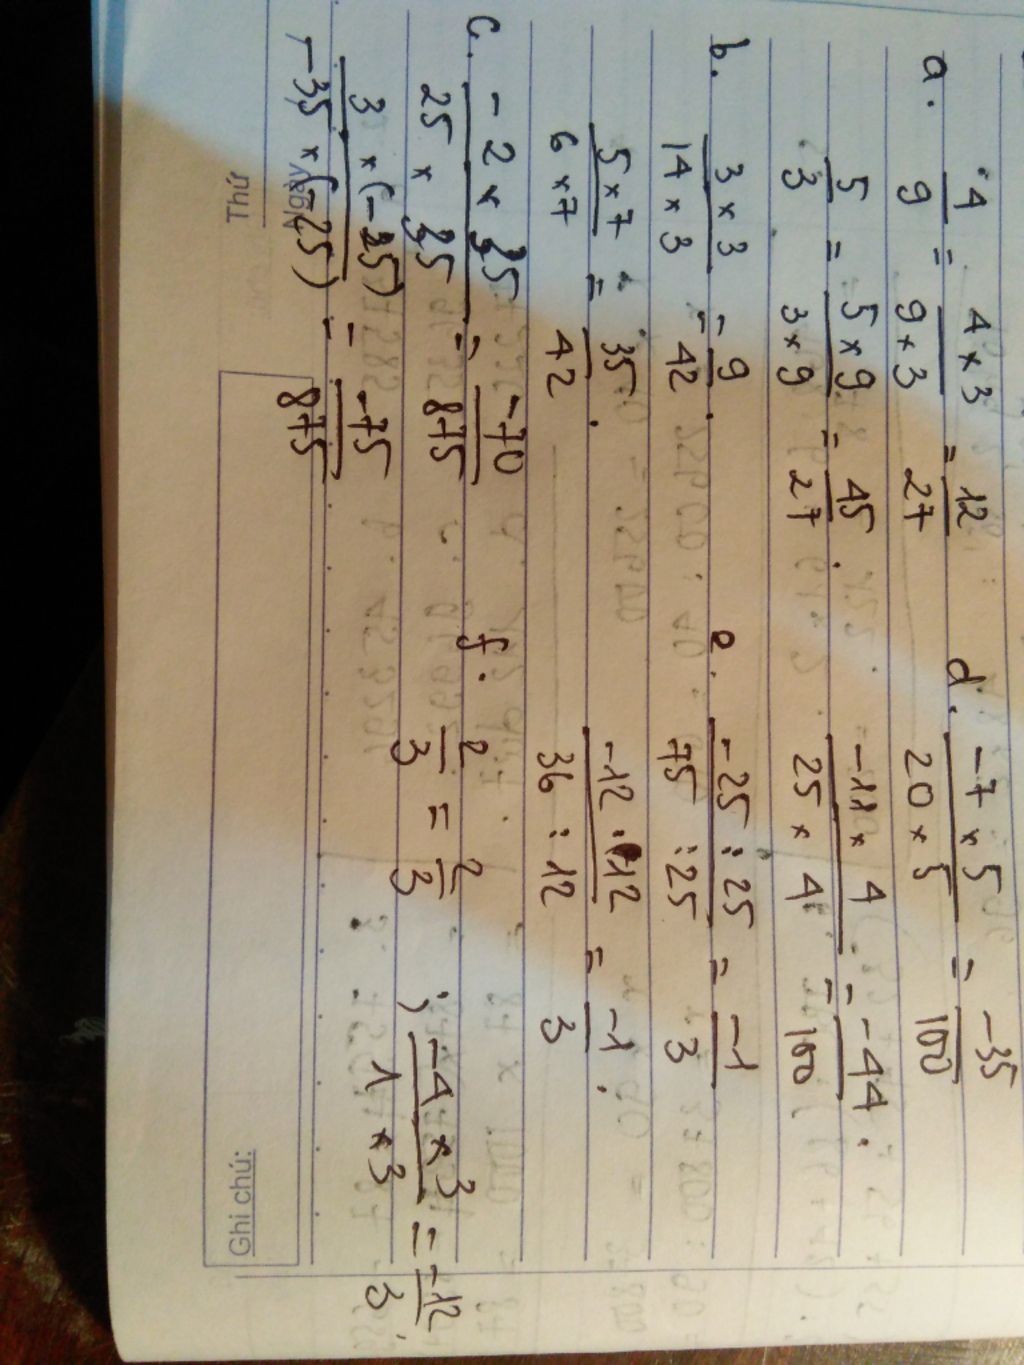 a. 4/9 = 4 x 3 / 9 x 3 = 12/27
5/3 = 5 x 9 / 3 x 9 = 45/27.
b. 3 x 3 / 14 x 3 = 9/42.
5 x 7 / 6 x 7 = 35/42.
c. -2 x 35 / 25 x 35 = -70/875
3 x (-25) / -35 x (-25) = -75/875
d. -7 x 5 / 20 x 5 = -35/100
-11 x 4 / 25 x 4 = -44/100.
e. -25 : 25 / 75 : 25 = -1/3
-12 : 12 / 36 : 12 = -1/3.
f. 2/3 = 2/3 ; -4 x 3 / 1 x 3 = -12/3.
Thứ
Ngày
Ghi chú: